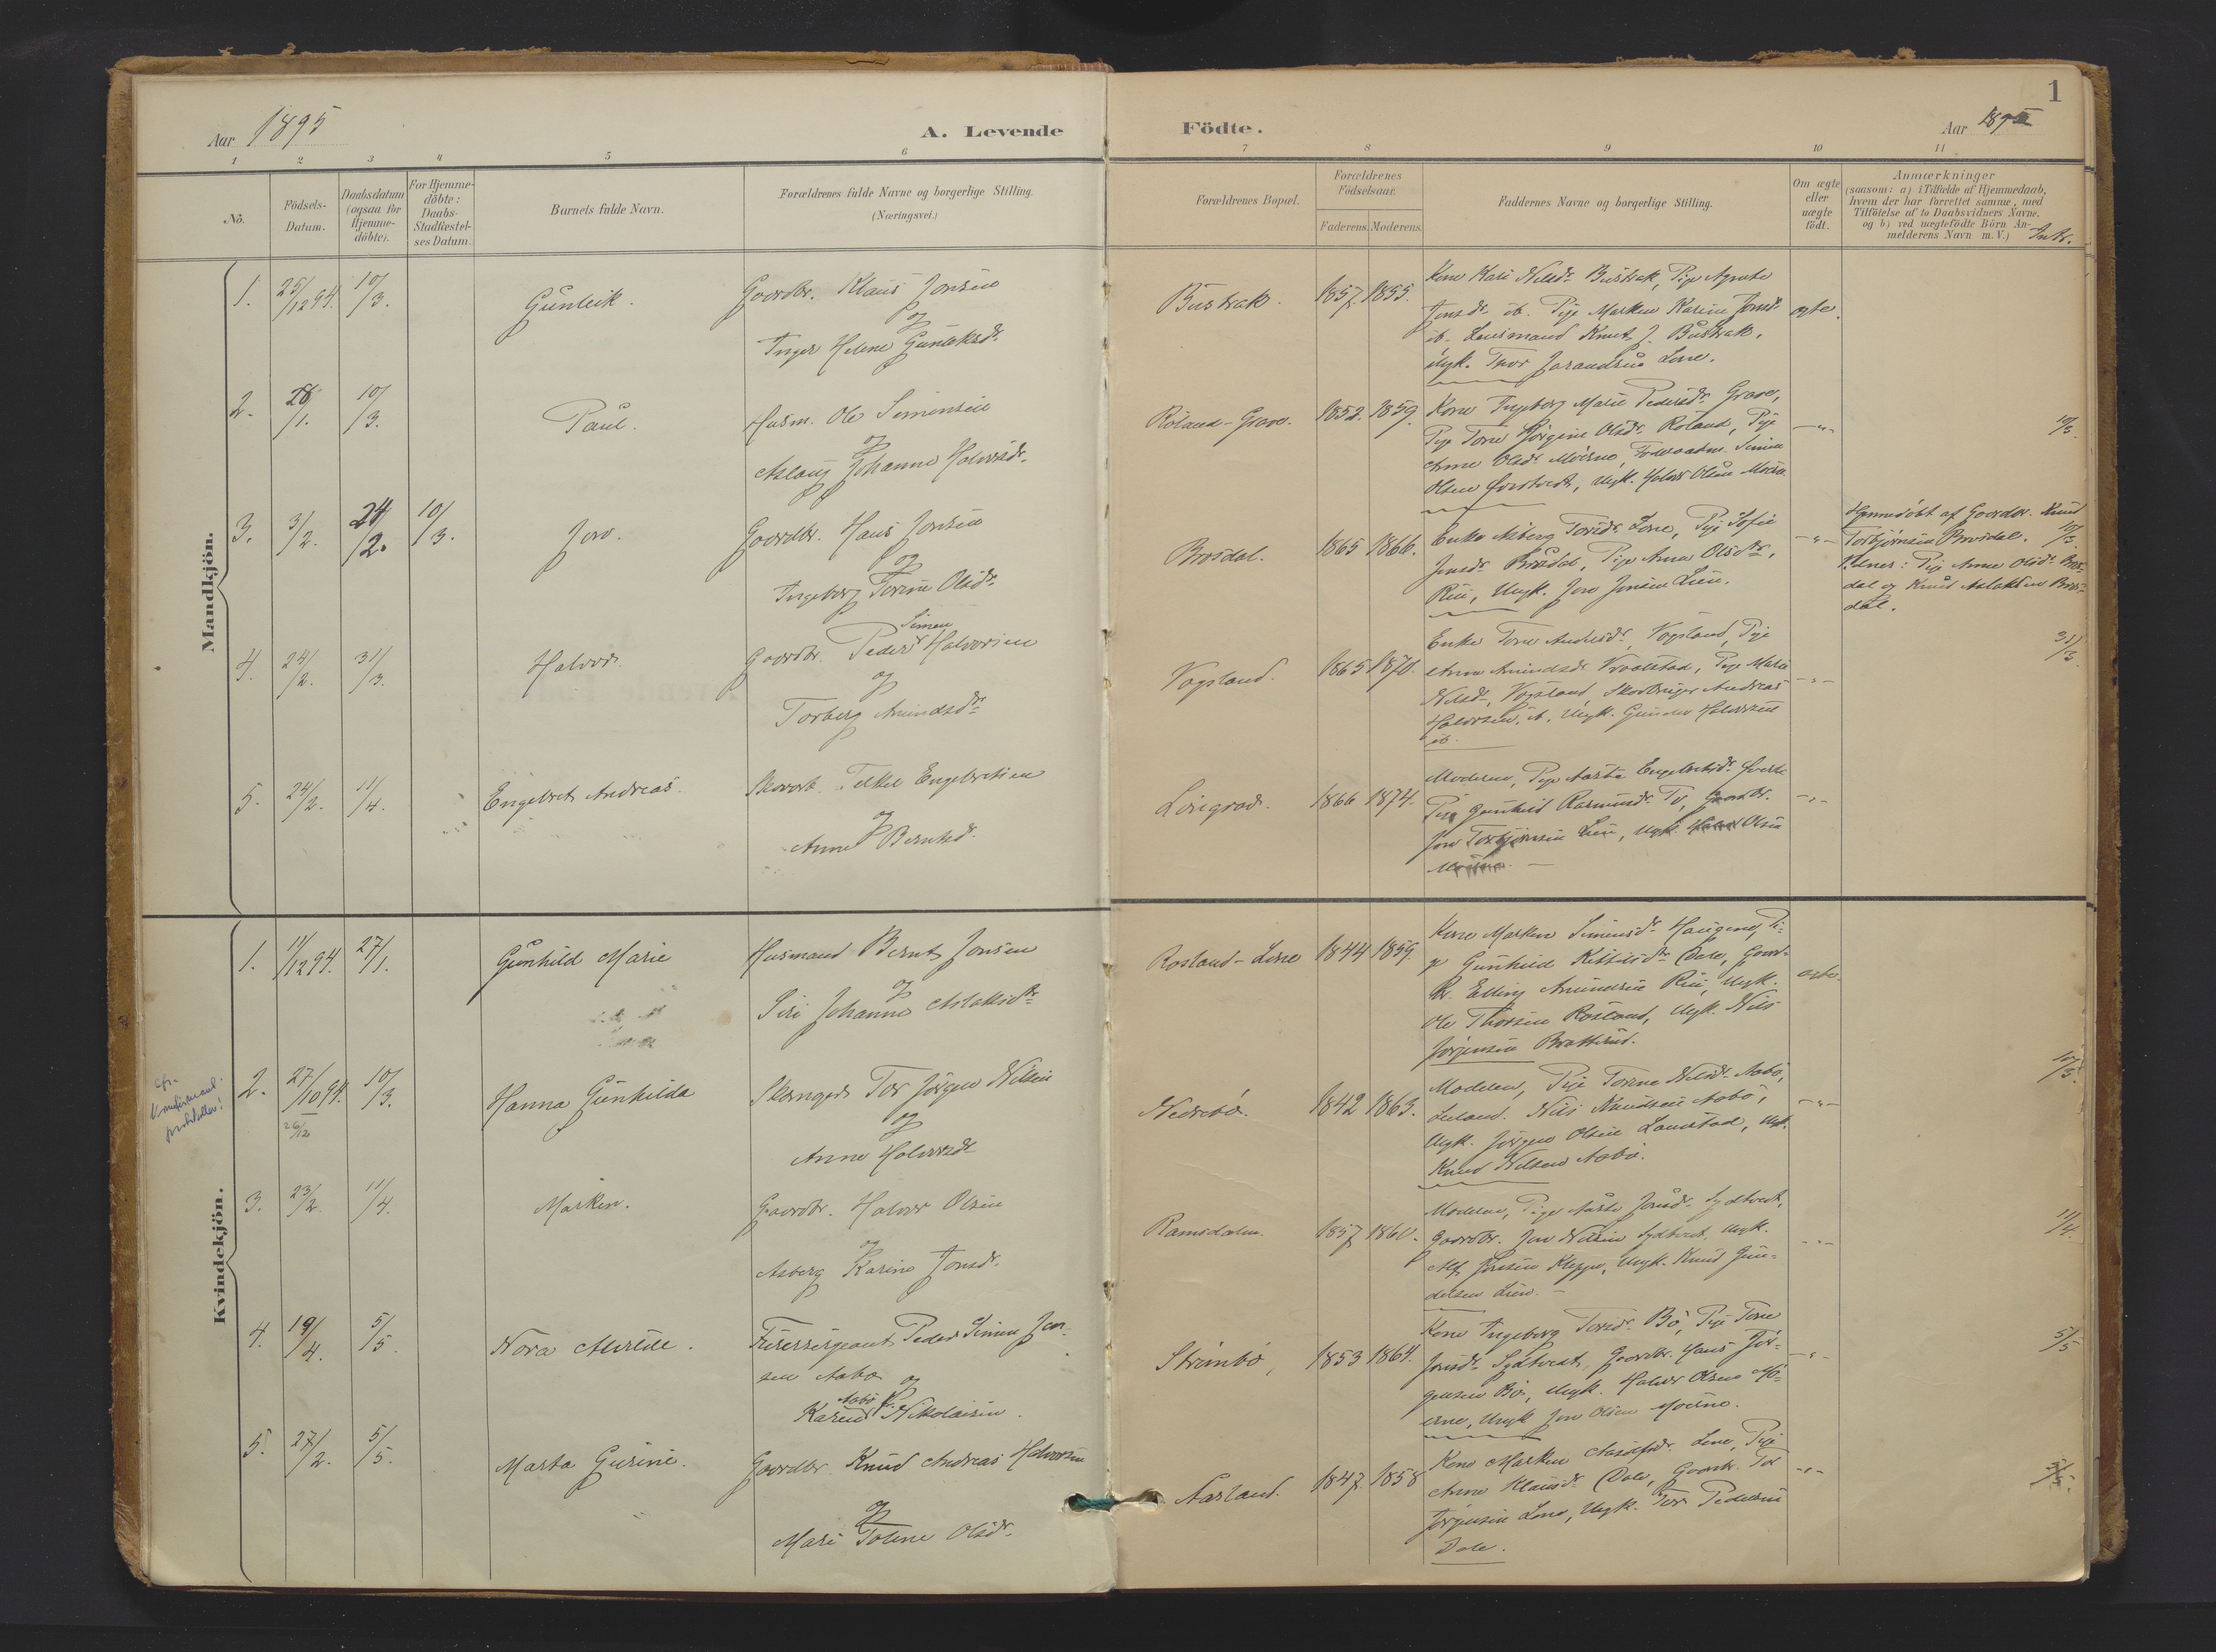 1
Aar 1895
A. Levende
Födte.
Aar 189
1 2 3 4 5 6 7 8 9 10 11
No.
Födsels-
Datum.
Daabsdatum
(ogsaa for
Hjemme-
döbte).
For Hjemme-
döbte:
Daabs-
Stadfæstel-
ses Datum.
Barnets fulde Navn.
Forældrenes fulde Navne og borgerlige Stilling.
(Næringsvei.)
Forældrenes Bopæl.
Forældrenes
Födselsaar.
Faderens. Moderens.
Faddernes Navne og borgerlige Stilling.
Om ægte
eller
uægte
födt.
Anmærkninger
(saasom: a) i Tilfælde af Hjemmedaab,
hvem der har forrettet samme, med
Tilföielse af to Daabsvidners Navne,
og b) ved uægtefödte Börn An-
melderens Navn m. V.)
Mandkjön.
1. 25/12 94. 10/3. Gunleik.
Gaardbr. Klaus Jonsen
og
Inger Helene Gunleiksdr.
Bustrak. 1857. 1855.
Kone Kari Nilsdr. Bustrak, Pige Agnete
Jonsdr. ib. Pige Marken Karine Jonsdr.
ib. Lensmand Knut J. Bustrak,
Ungk. Thor
ægte.
2. 28/1. 10/3. Paul.
Husm. Ole Simensen
og
Aslaug Johanne Halvorsdr.
Röland-Grave. 1852. 1859.
Kone Ingeborg Marie Pedersdr. Grave,
Pige Torne Jörgine Olsdr. Röland, Pige
Anne Olsdr. Moerne, Födoraadsm. Simen
Olsen, Ungk. Halvor Olsen Moerne
10/3.
3. 3/2. 24/2. 10/3. Jon.
Gaardbr. Hans Jonsen
og
Ingeborg Torine Olsdr.
Brosdal. 1865 1866.
Enke Asberg Torsdr. Lene, Pige Sofie
Jonsdr. Brosdal, Pige Anna Olsdtr.,
Rui, Ungk. Jon Jonsen Lien.
Hjemmedöbt af Gaardbr. Knud
Torbjörnsen Brosdal. 10/3.
Vidner: Pige Anne Olsdr. Bros-
dal og Knud Aslaksen Bros-
dal.
4. 24/2. 31/3. Halvor.
Simen
Gaardbr. Peder Halvorsen
og
Torberg Amundsdr.
Vogsland. 1865 1870.
Enke Torne Andersdr. Vogsland, Pige
Anne Amundsdr., Pige Marie
Nilsdr., Vogsland, Andreas
Halvorsen, ib., Ungk. Gunder Halvorsen
ib.
31/3.
5. 24/2. 11/4. Engebret Andreas.
Telkel Engebretsen
og
Anne Berntsd.
Löngrod. 1866 1874.
Moderen, Pige Aaste Engebretsdr.
Pige Gunhild Rasmusdr., Gaardbr.
Jon Torbjörnsen Lien, Ungk. Halvor Olsen
Kvindekjön.
1. 11/12 94. 27/1. Gunhild Marie
Husmand Bernt Jonsen
og
Siri Johanne Aslaksdr.
Rosland-Lene 1844 1859.
Kone Marken Simensdr. Haugene, Pi-
ge Gunhild Kittilsdr. Dale, Gaard-
br. Elling Amundsen Rui, Ungk.
Ole Thorsen Rosland, Ungk. Nils
Jörgensen Brattland.
ægte.
cfr.
Konfirmant-
protokollen!
2. 27/10 94. 10/3. Hanna Gunhilda
26/12
Tor Jörgen Nilsen
og
Anne Halvorsdr.
Nedrebö. 1842 1863.
Moderen, Pige Torene Nilsdr. Aabö,
Nils Knudsen Aabö,
Ungk. Jörgen Olsen, Ungk.
Knud Nilsen Aabö.
10/3.
3. 23/2. 11/4. Marken.
Gaardbr. Halvor Olsen
og
Asberg Karine Jonsdr.
Ramsdalen. 1857 1860.
Moderen, Pige Aaste Jonsdr. Sydtveit,
Gaardbr. Jon Nilsen Sydtveit, Ungk.
Alf Jonsen Kleppe, Ungk. Knud Gun-
dersen Lien.
11/4.
4. 19/4. 5/5. Nora Alvilde.
Furersergeant Peder Simen Jen-
sen Aabö og
Karen Nikolaisen.
Strömbö, 1853 1864.
Kone Ingeborg Torsdr. Bö, Pige Torne
Jonsdr. Sydtveit, Gaardbr. Hans Jör-
gensen Bö, Ungk. Halvor Olsen Mo-
erne, Ungk. Jon Olsen Moerne.
5/5
5. 27/2. 5/5. Marta Gurine.
Gaardbr. Knud Andreas Halvorsen
og
Mari Tolene Olsdr.
Aasland. 1847. 1858
Kone Marken, Pige
Anne Klausdr. Dale, Gaardbr. Tor
Jörgensen Lene, Ungk. Tor Pedersen
Dale.